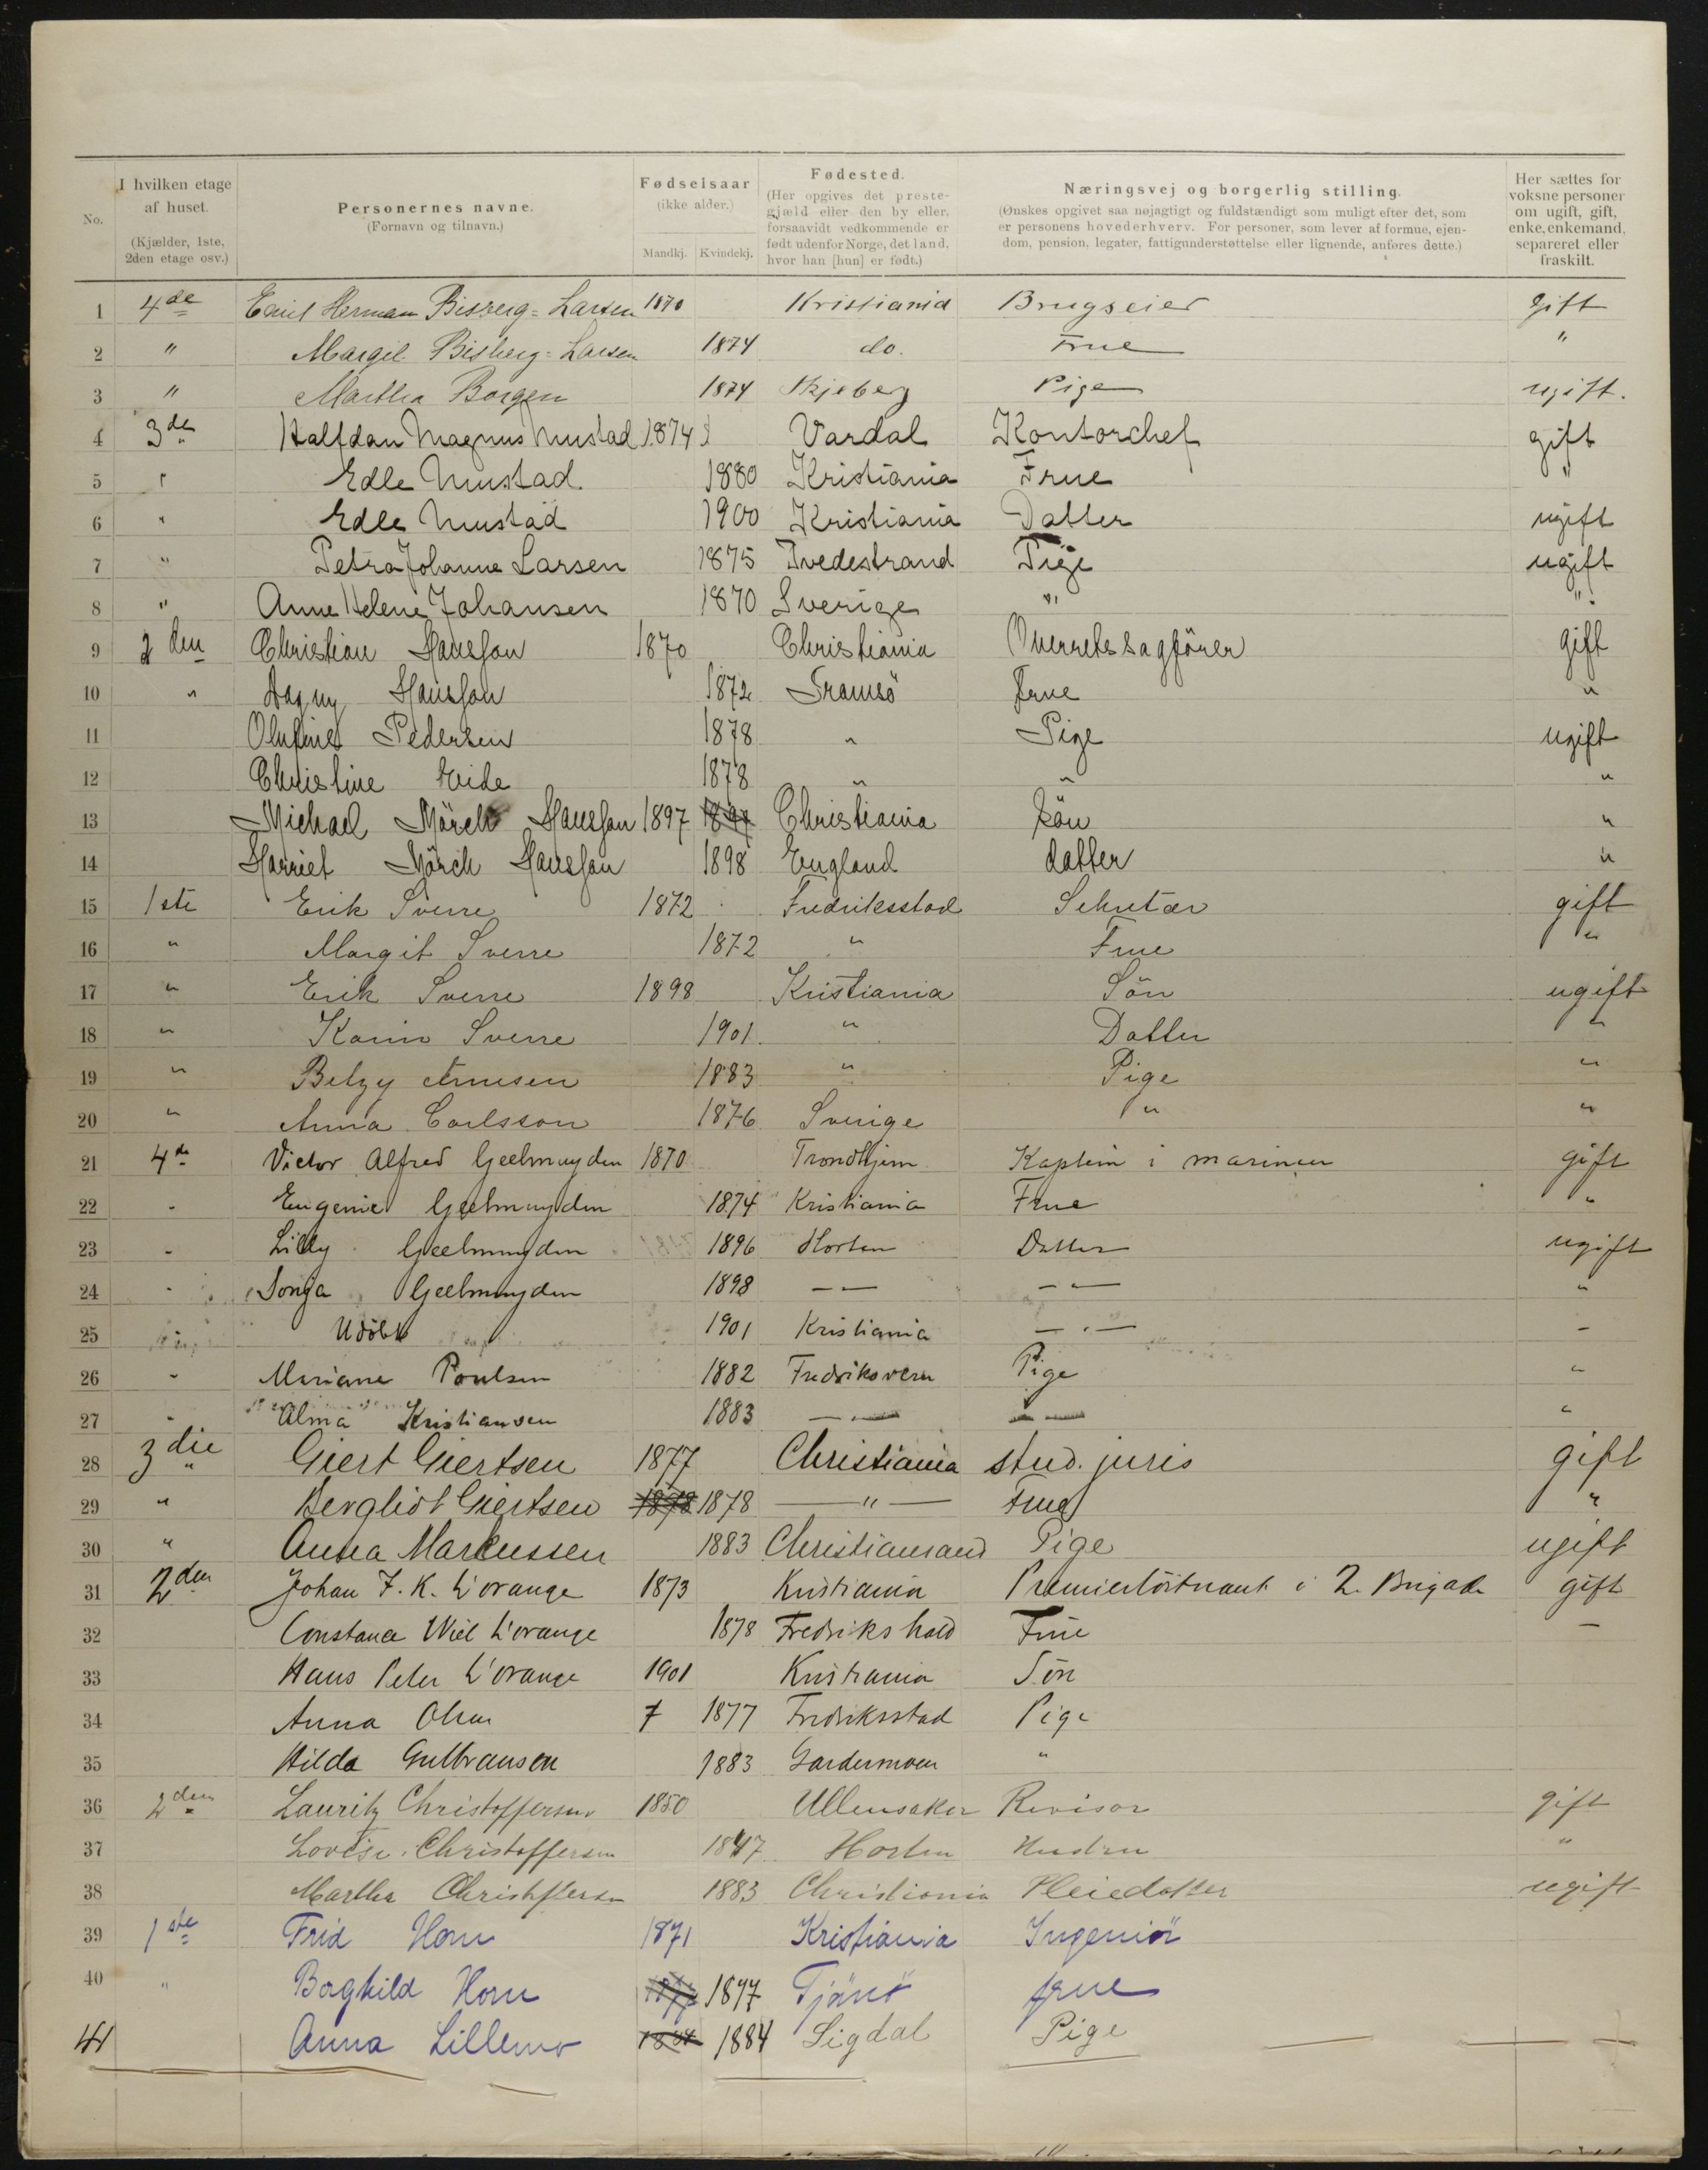 No.
I hvilken etage af huset.
(Kjælder, 1ste, 2den etage osv.)
Personernes navne.
(Fornavn og tilnavn.)
Fødselsaar
(ikke alder.)
Mandkj. Kvindekj.
Fødested.
(Her opgives det prestegjæld eller den by eller, forsaavidt vedkommende er født udenfor Norge, det land, hvor han [hun] er født.)
Næringsvej og borgerlig stilling.
(Ønskes opgivet saa nøjagtigt og fuldstændigt som muligt efter det, som er personens hovederhverv. For personer, som lever af formue, ejendom, pension, legater, fattigunderstøttelse eller lignende, anføres dette.)
Her sættes for voksne personer om ugift, gift, enke, enkemand, separeret eller fraskilt.
1 4de Emil Herman Bisberg=Larsen 1870 Kristiania Brugseier gift
2 " Margit Bisberg=Larsen 1874 do. Frue "
3 " Martha Borgen 1874 Skjeberg Pige ugift.
4 3de Halfdan Magnus Mustad 1874 Vardal Kontorchef gift
5 " Edle Mustad. 1880 Kristiania Frue "
6 " Edle Mustad 1900 Kristiania Datter ugift
7 " Petra Johanne Larsen 1875 Tvedestrand Pige ugift
8 " Anne Helene Johansen 1870 Sverige " "
9 2den Christian Hansson 1870 Christiania Overretssagfører gift
10 " Dagny Hansson 1872 Tromsö Frue "
11 Olufine Pedersen 1878 " Pige ugift
12 Christine Eide 1878 " " "
13 Michael Mörch Hansson 1897 Christiania Sön "
14 Harriet Mörch Hansson 1898 England datter "
15 1ste Erik Sverre 1872 Fredriksstad Sekretær gift
16 " Margit Sverre 1872 " Frue "
17 " Erik Sverre 1898 Kristiania Sön ugift
18 " Karin Sverre 1901 " Datter "
19 " Betzy Arnesen 1883 " Pige "
20 " Anna Carlsson 1876 Sverige " "
21 4de Victor Alfred Geelmuyden 1870 Trondhjem Kaptein i marinen gift
22 - Eugenie Geelmuyden 1874 Kristiania Frue "
23 - Lilly Geelmuyden 1896 Horten Datter ugift
24 - Sonja Geelmuyden 1898 — — — — "
25 - Udöbt 1901 Kristiania — . — -
26 - Mariane Poulsen 1882 Fredriksvern Pige "
27 - Alma Kristiansen 1883 — — — — "
28 3die " Giert Giertsen 1877 Christiania stud. juris gift
29 " Bergliot Giertsen 1878 1878 — " — Frue "
30 " Anna Markussen 1883 Christiansand Pige ugift
31 2den Johan F. K. L'orange 1873 Kristiania Premierlöitnant i 2. Brigade gift
32 Constance Wiel L'orange 1878 Fredrikshald Frue —
33 Hans Peter L'orange 1901 Kristiania Sön
34 Anna Olsen 1877 Fredriksstad Pige
35 Hilda Gulbransen 1883 Gardermoen "
36 2den Lauritz Christoffersen 1850 Ullensaker Revisor gift
37 Lovise Christoffersen 1847 Horten Hustru "
38 Martha Christoffersen 1883 Christiania Pleiedatter ugift
39 1ste Frid Horn 1871 Kristiania Ingeniör
40 " Borghild Horn 1877 Tjömö frue
41 Anna Lillemo 1884 1884 Sigdal Pige